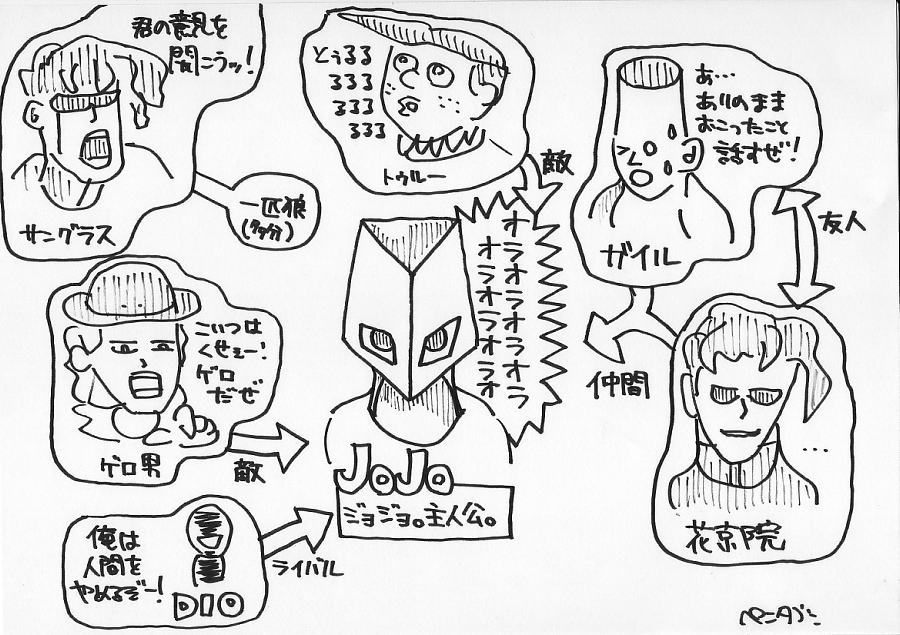 君の意見を
聞こうッ!
サングラス
一匹狼
(多分)
とぅるる
るるる
るるる
るるる
トゥルー
敵
ぁ…
ありのまま
おこったこと
話すぜ!
ガイル
友人
オラオラオラオラオラ
オラオラオラオラ
仲間
こいつは
くせぇー!
ゲロ
だぜ
ゲロ男
敵
JoJo
ジョジョ。主人公。
…
花京院
俺は
人間を
やめるぞー!
DIO
ライバル